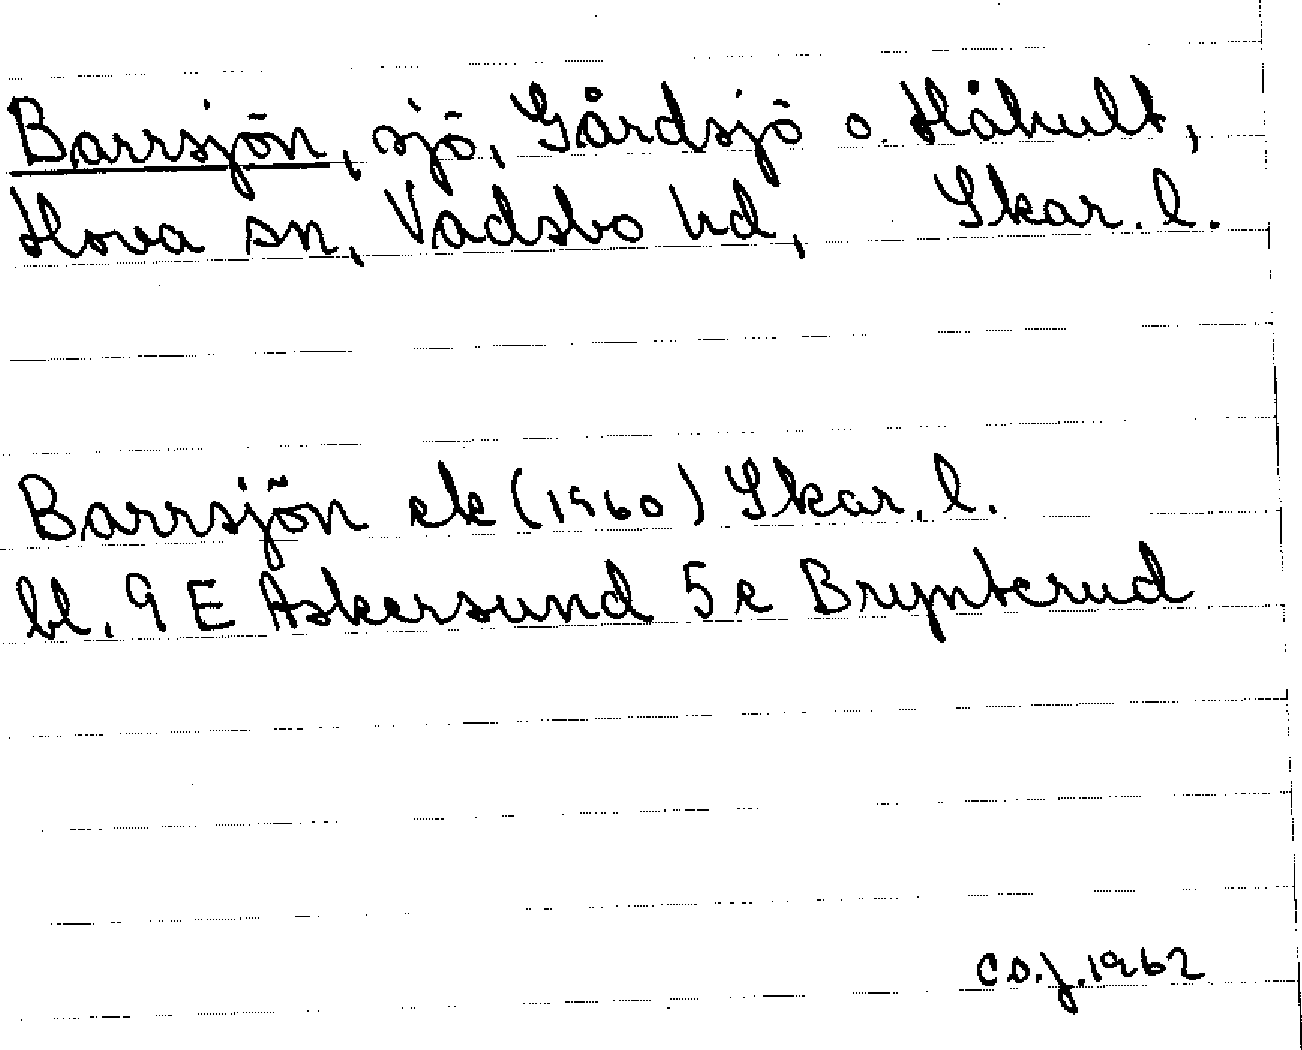 Barrsjön, sjö, Gårdsjö o. Håhult,
Hova sn, Vadsbo hd, Skar. l.
Barrsjön ek (1960) Skar. l.
bl. 9 E Askersund 5 e Brynterud
C.S.J. 1962